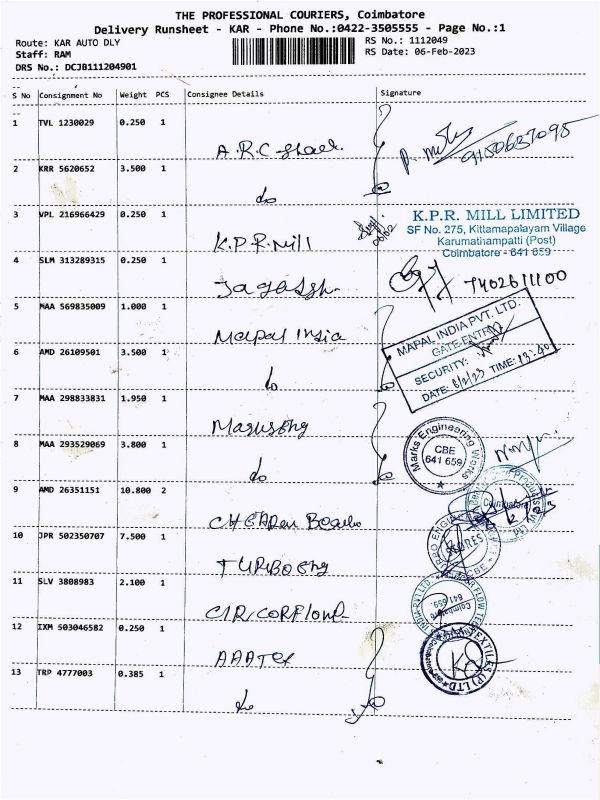 THE PROFESSIONAL COURIERS, Coimbatore
Delivery Runsheet - KAR - Phone No.:0422-3505555 - Page No.:1
Route: KAR AUTO DLY
RS No.: 1112049
Staff: RAM
RS Date: 06-Feb-2023
DRS No.: DCJB111204901
S No Consignment No Weight PCS Consignee Details Signature
1 TVL 1230029 0.250 1
A.R.C
9150637095
2 KRR 5620652 3.500 1
do
3 VPL 216966429 0.250 1
K.P.R. Mill
K.P.R. MILL LIMITED
SF No. 275, Kittampalayam Village
Karumathampatti (Post)
Coimbatore - 641 659
4 SLM 313289315 0.250 1
7402611100
5 MAA 569835009 1.000 1
Mapal India
MAPAL INDIA PVT. LTD.
GATE ENTRY
SECURITY:
DATE: 6/2/23 TIME: 13:40
6 AMD 26109501 3.500 1
do
7 MAA 298833831 1.950 1
Marks Engineering Works
CBE
641 659
8 MAA 293529069 3.800 1
do
9 AMD 26351151 10.800 2
Coimbatore
10 JPR 502350707 7.500 1
TURBO Eng
STORES
CBE
11 SLV 3808983 2.100 1
CIRCOR Flow
Coimbatore
641 659.
12 IXM 503046582 0.250 1
AAATex
13 TRP 4777003 0.385 1
do